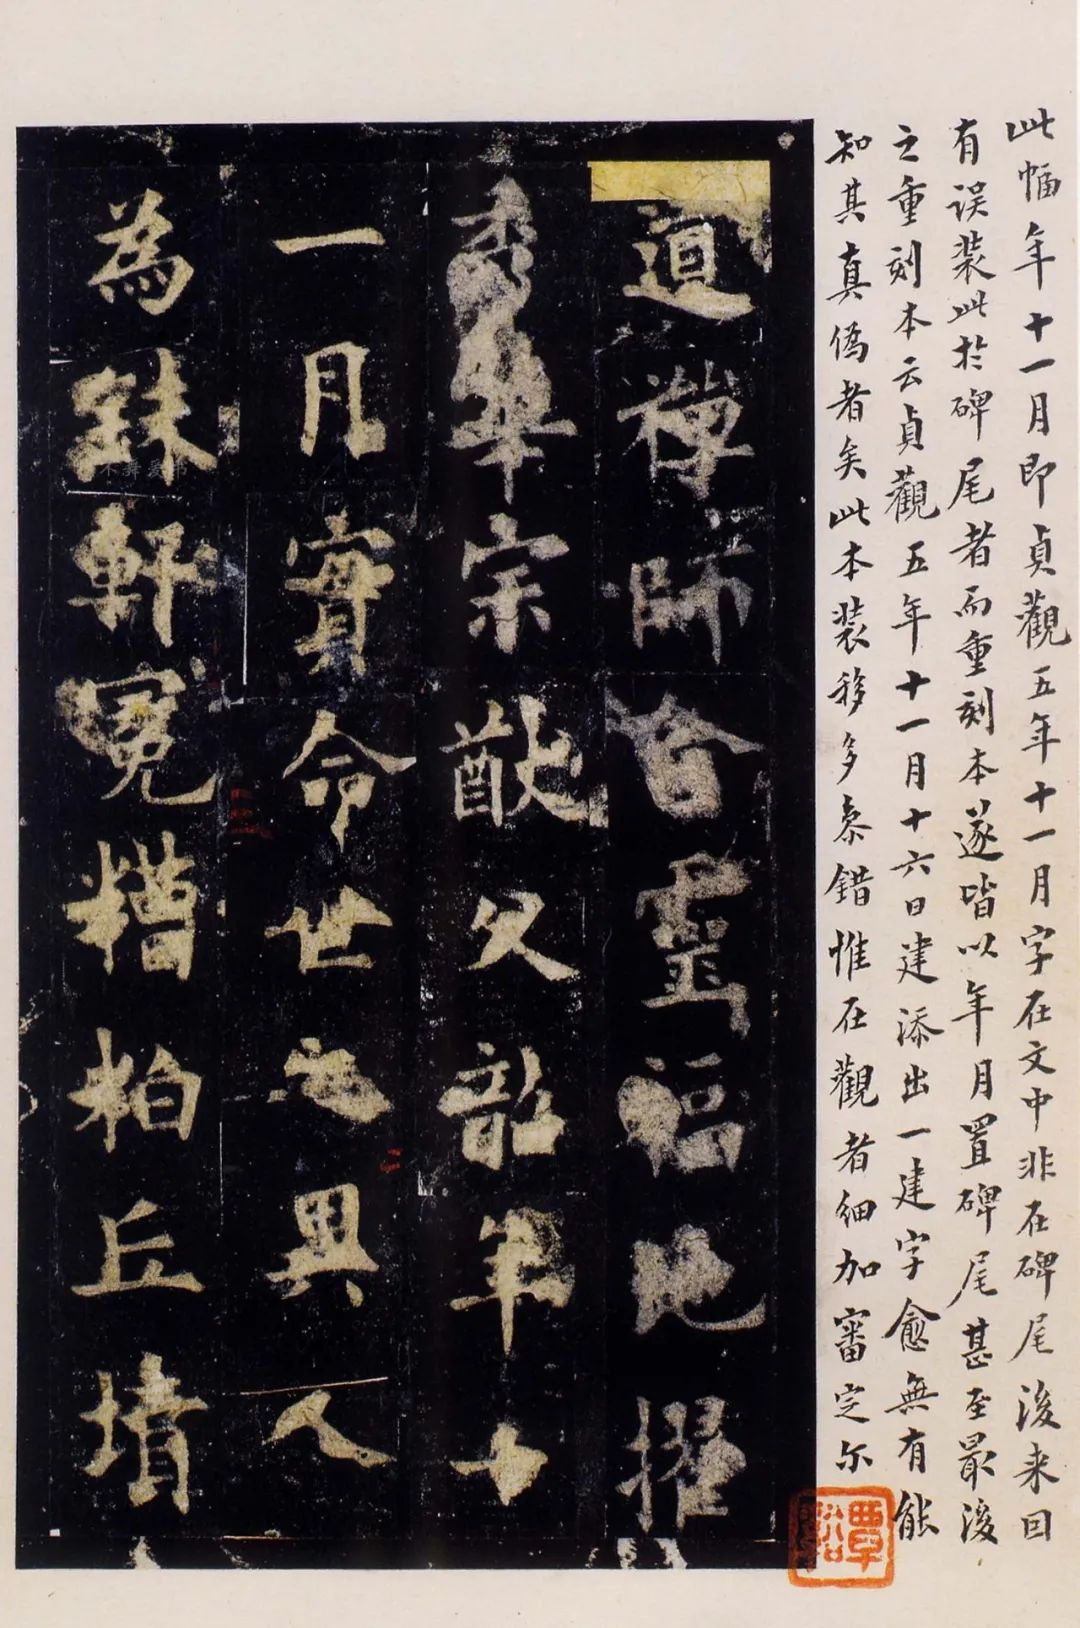 此幅年十一月即貞觀五年十一月字在文中非在碑尾後来因
有误装此於碑尾者而重刻本遂皆以年月置碑尾甚至最後
之重刻本云貞觀五年十一月十六日建添出一建字愈無有能
知其真僞者矣此本装移多紊錯惟在觀者細加審定尔
覃谿
道禪師含靈福地擢
秀華宗猷父韶年十
一月實命世之異人
為銖軒冕糟粕丘墳